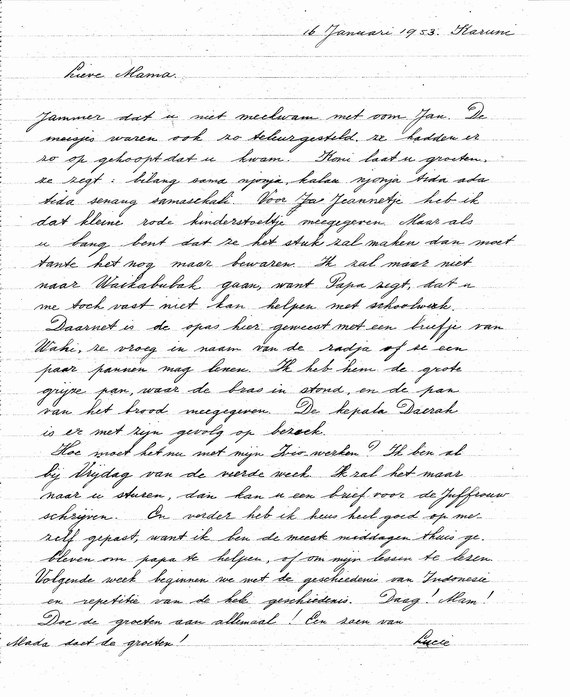 16 Januari 1953. Karuni
Lieve Mama.
Jammer dat u niet meekwam met oom Jan. De
meisjes waren ook zo teleurgesteld, ze hadden er
zo op gehoopt dat u kwam. Koni laat u groeten,
ze zegt: bilang sama njonja, kalau njonja tida ada
tida senang samasekali. Voor Jeannetje heb ik
dat kleine rode kinderstoeltje meegegeven. Maar als
u bang bent dat ze het stuk zal maken dan moet
tante het nog maar bewaren. Ik zal maar niet
naar Waikabubak gaan, want Papa zegt, dat u
me toch vast niet kan helpen met schoolwerk.
Daarnet is de opas hier geweest met een briefje van
Wahi, ze vroeg in naam van de radja of ze een
paar pannen mag lenen. Ik heb hem de grote
grijze pan, waar de bras in stond, en de pan
van het brood meegegeven. De kepala Daerah
is er met zijn gevolg op bezoek.
Hoe moet het nu met mijn werken? Ik ben al
bij Vrijdag van de vierde week. Ik zal het maar
naar u sturen, dan kan u een brief voor de Juffrouw
schrijven. En verder heb ik heus heel goed op me-
zelf gepast, want ik ben de meeste middagen thuis ge-
bleven om papa te helpen, of om mijn lessen te leren.
Volgende week beginnen we met de geschiedenis van Indonesië
en repetitie van de hele geschiedenis. Daag! Mam!
Doe de groeten aan allemaal! Een zoen van
Mada doet de groeten! Lucie